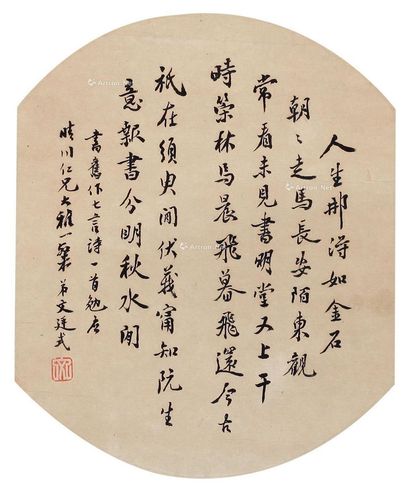 人生那得如金石
朝〻走馬長安陌東觀
常看未見書明堂又上干
時策林烏晨飛暮飛還今古
祇在須臾間伏羲甯知阮生
意報書分明秋水間
書舊作七言詩一首勉应
晴川仁兄大雅之屬 弟文廷式